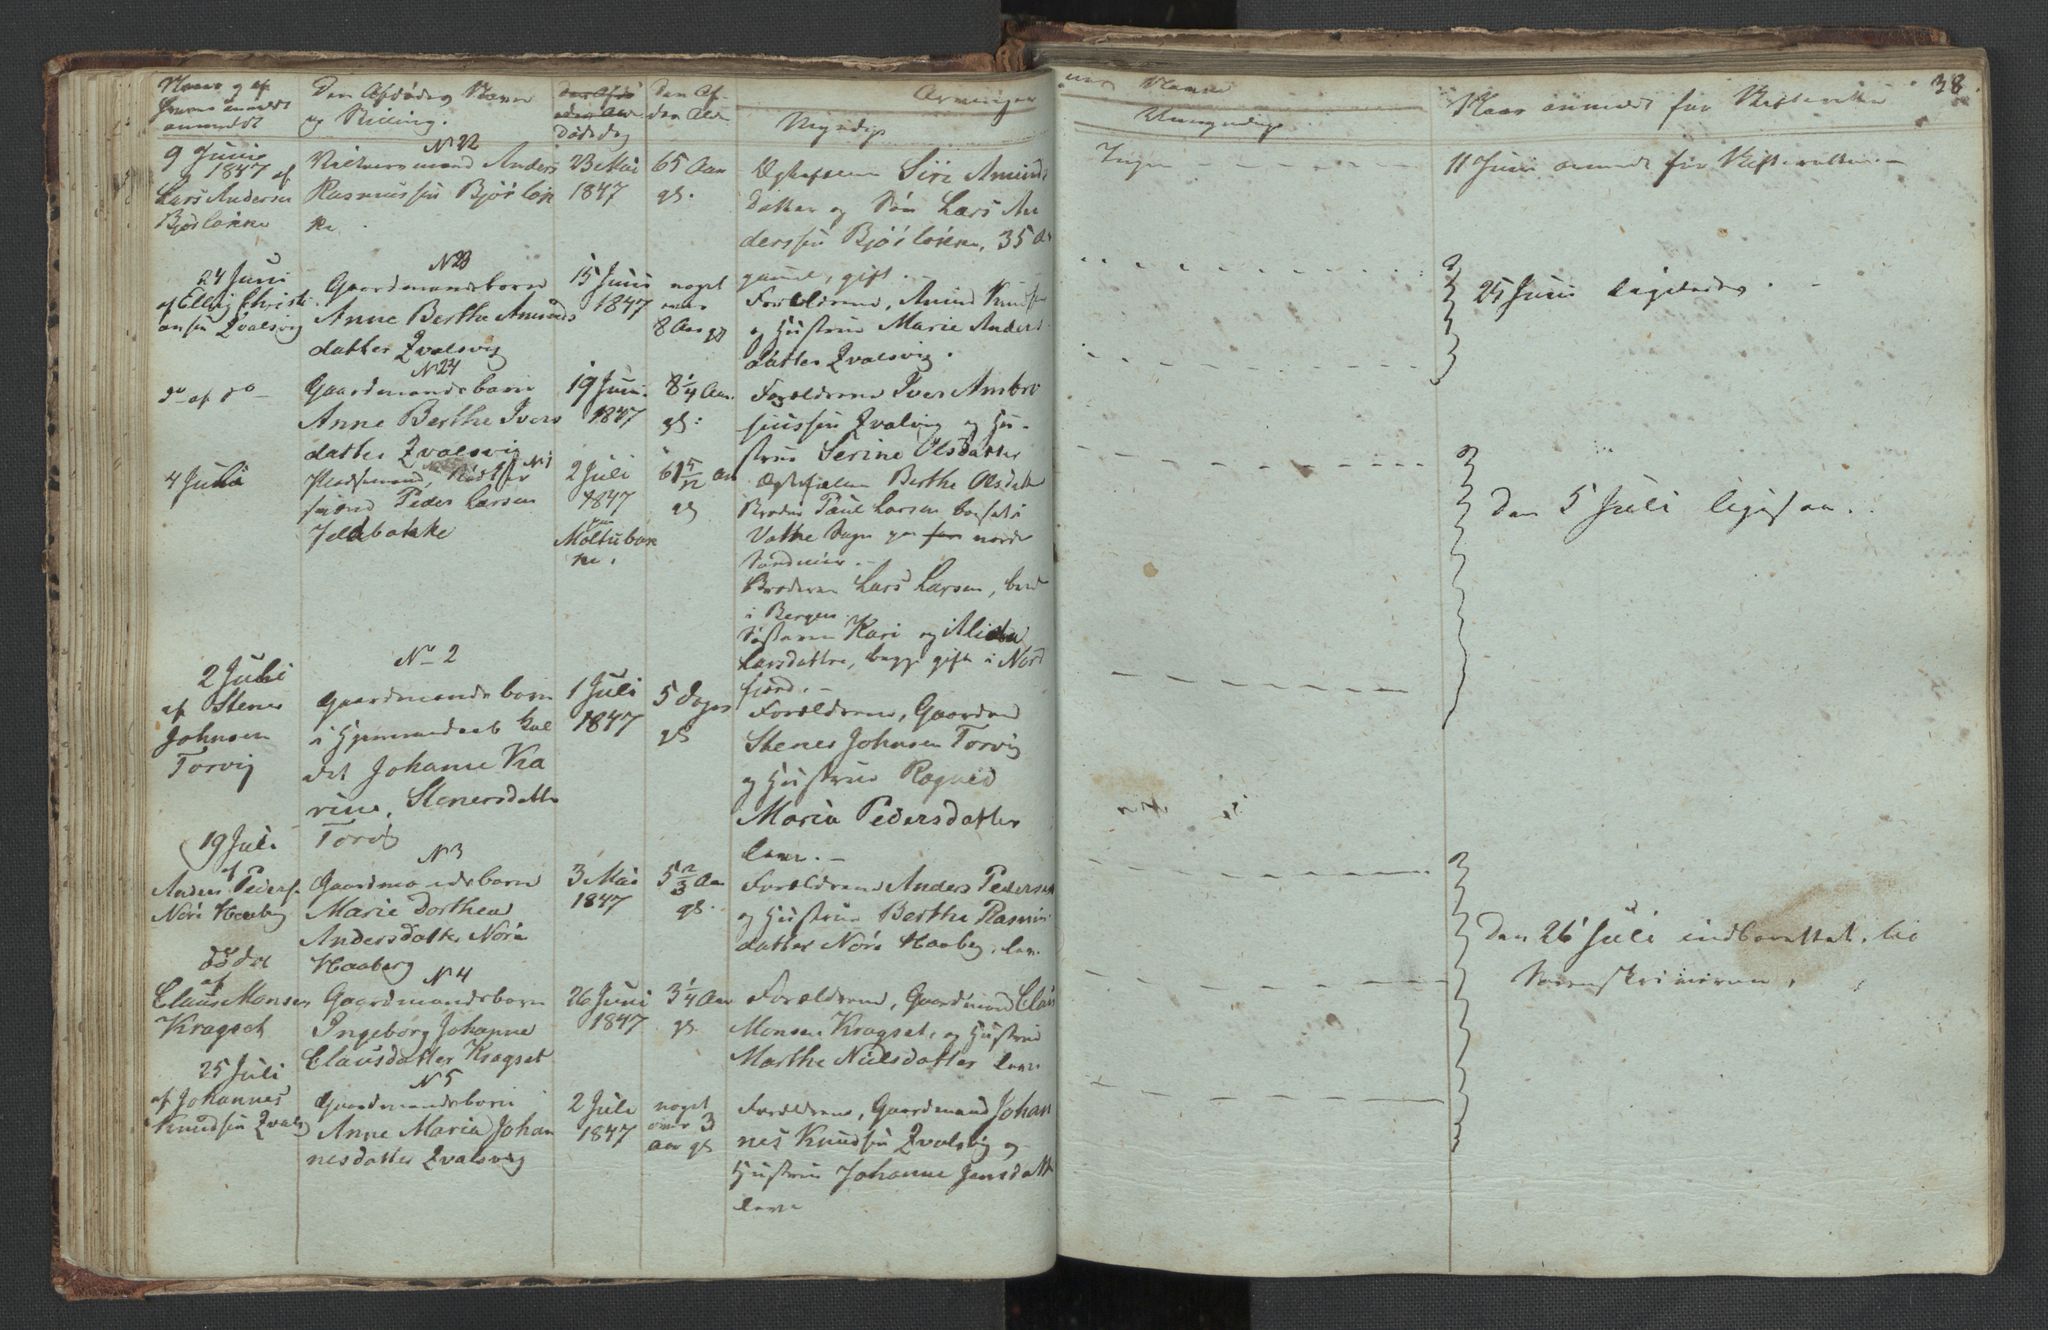 Naar og af
hvem anmeldt
Den Afdødes Navn
og Stilling.
Dødsdag
Den Af-
dødes Ald
Arvinger
Myndige
Navne
Umyndige
Naar anmeldt for Skifteretten
38.
9 Junii
1847 af
Lars Andersen
Bjørløkke
N 22
Anders
Rasmussen Bjørløk
ke.
23 Mai
1847
65 Aar
gl.
Siri Amunds
datter og Søn Lars An
derssen Bjørløkke, 35 Aar
gammel, gift. -
Ingen
11 Junii anmeldt for Skifteretten. -
24 Juni
af Elling Christi
ansen Qvalsvig
N 23
Gaardmandsbarn
Anne Berthe Amunds
datter Qvalsvig
15 Junii
1847
noget
over
8 Aar gl
Forældrene, Amund Knudsen
og Hustrue Marie Anders
datter Qvalsvig.
25 Junii ligeledes. -
do af do
N 24
Gaardmandsbarn
Anne Berthe Ivers
datter Qvalsvig
19 Juni
1847
8 1/4 Aar
gl:
Forældrene Iver Ambro
siussen Qvalsvig og Hu-
strue Serine Olsdatter
4 Juli
N 1
Pladsmand,
Peder Larsen
Jeldbakke
2 Juli
1847
paa
Moltubak
ke.
61 5/12 Aar
gl
Berthe Olsdatter
Broder Paul Larsen bosat i
Vatne Sogn paa nordre
Søndmør. -
Broderen Lars Larsen, boende
i Bergen.
Søsterne Kari og
Larsdattre, begge gifte i Nord
fjord. -
Den 5 Juli ligesaa.
2 Juli
af Stener
Johnsen
Torvig
No 2
Gaardmandsbarn
i Hjemmedaab kal
det Johanne Ka
rine, Stenersdatter
Torvig
1 Juli
1847
5 Dage
gl
Forældrene, Gaardmand
Stener Johnsen Torvig
og Hustrue Ragnild
Maria Pedersdatter
leve. -
19 Juli
af
Anders Peders.
Nøre Haaberg
N 3
Gaardmandsbarn
Marie Dorthea
Andersdatter Nøre
Haaberg
3 Mai
1847
5 2/3 Aar
gl.
Forældrene Anders Pedersen
og Hustrue Berthe Rasmus
datter Nøre Haaberg, leve.
Den 26 Juli indberettet til
Sorenskriveren.
af
Claus Monsen
Kragset
N 4
Gaardmandsbarn
Ingeborg Johanne
Clausdatter Kragset
26 Juni
1847
3 1/4 Aar
gl.
Forældrene, Gaardmand Claus
Monsen Kragset, og Hustrue
Marthe Nielsdatter leve
25 Juli
af Johannes
Knudsen Qvalsv
N 5
Gaardmandsbarn
Anne Maria Johan
nesdatter Qvalsvig
2 Juli
1847
noget
over 3
Aar gl
Forældrene, Gaardmand Johan
nes Knudsen Qvalsvig og
Hustrue Johanne Jensdatt
leve